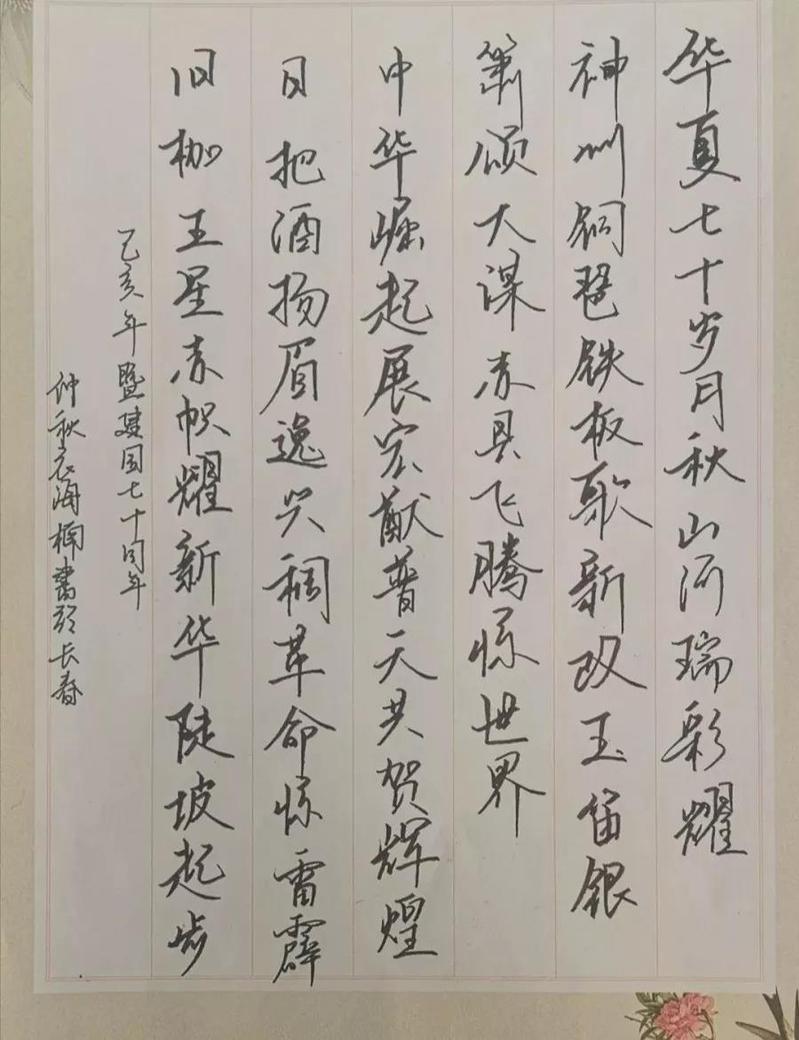 华夏七十岁月秋山河瑞彩耀
神州铜琶铁板歌新政玉笛银
箫颂大谋赤县飞腾惊世界
中华崛起展宏猷普天共贺辉煌
日把酒扬眉逸兴稠革命惊雷霹
旧枷五星赤帜耀新华陡坡起步
乙亥年暨建国七十周年
仲秋 海楠书于长春